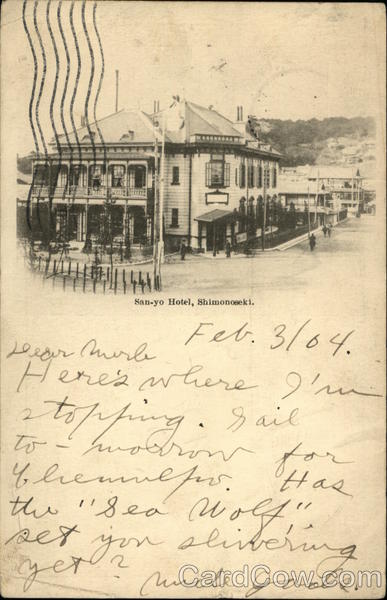 San-yo Hotel, Shimonoseki.
Feb. 3/04.
Dear Merle
Here's where I'm
stopping. Sail
to-morrow for
Chemulpo. Has
the "Sea Wolf"
set you shivering
yet?
CardCow.com